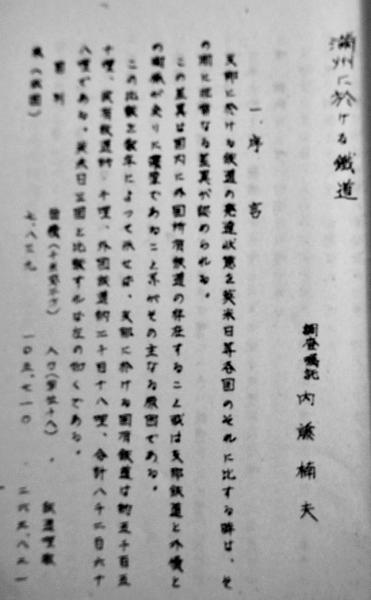 滿州に於ける鐵道
調査囑託 内藤楠夫
一、序言
支那に於ける鐵道の發達狀態を英米日等各國のそれに比する時は、そ
の間に非常なる差異が認められる。
この差異は國内に外國所有鐵道の存在すること或は支那鐵道と外債と
の關係が
であること等がその主なる原因である。
この比較を數字によつて示せば、支那に於ける國有鐵道は約五千百五
十哩、民有鐵道約一千哩、外國鐵道約二千百十八哩、合計八千二百六十
八哩である。英米日三國と比較すれば左の如くである。
國別 面積 人口 鐵道哩數
七、八三九 一〇五、七一〇 二六五、八二一